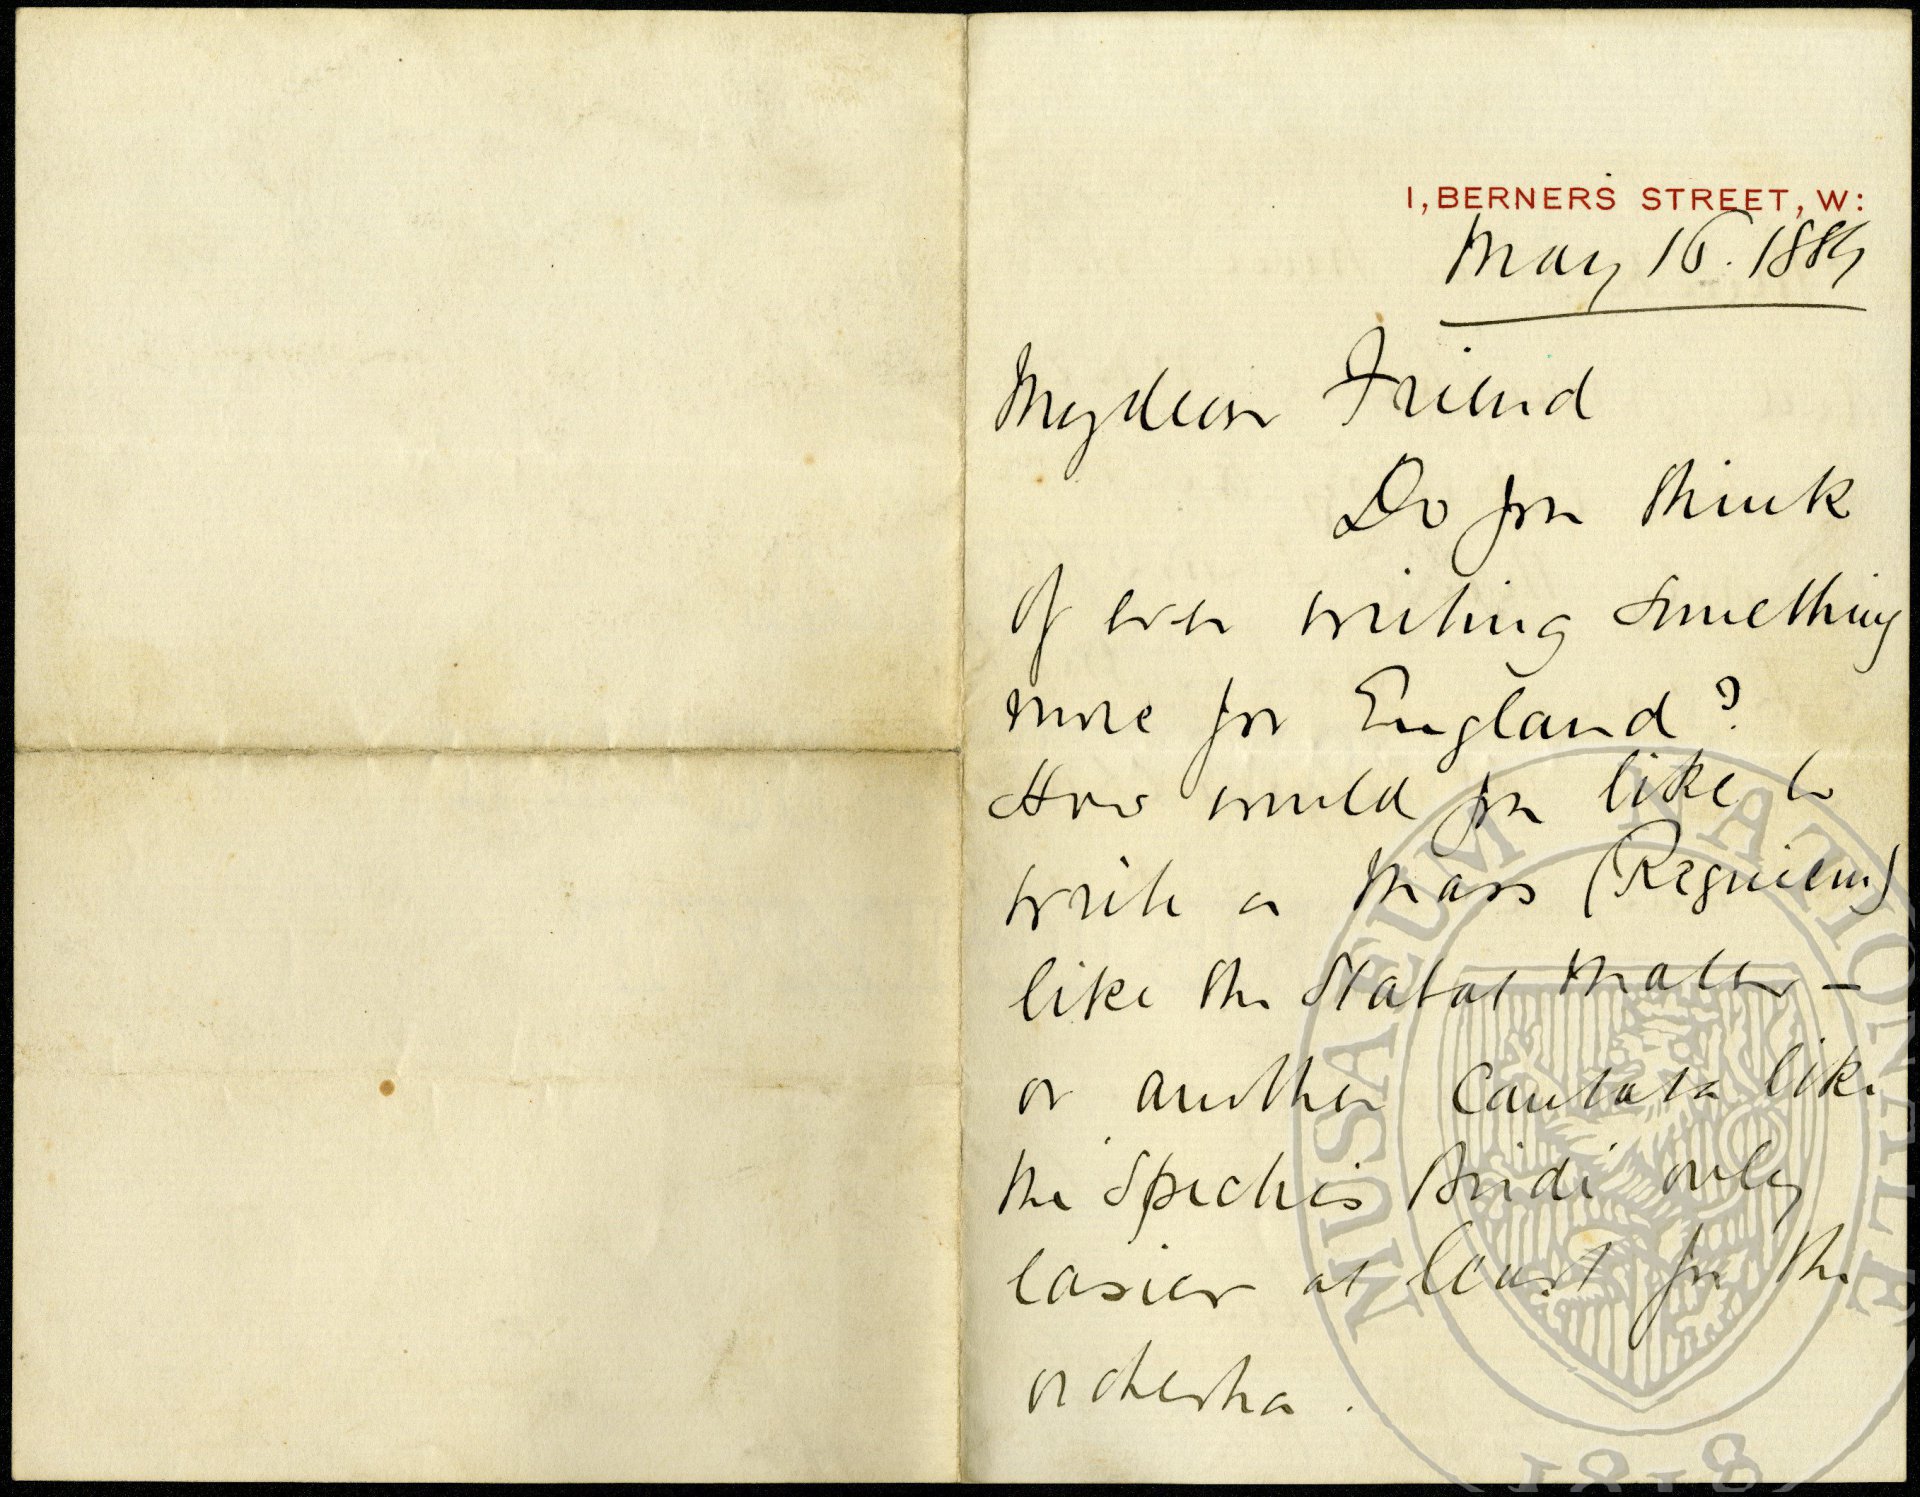 1, BERNERS STREET, W:
May 16. 1889
My dear Friend
Do you think
of ever writing something
more for England?
How would you like to
write a Mass (Requiem)
like the Stabat Mater –
or another Cantata like
the Spectre's Bride only
easier at least for the
orchestra.
MUSAEUM NATIONALE
1818